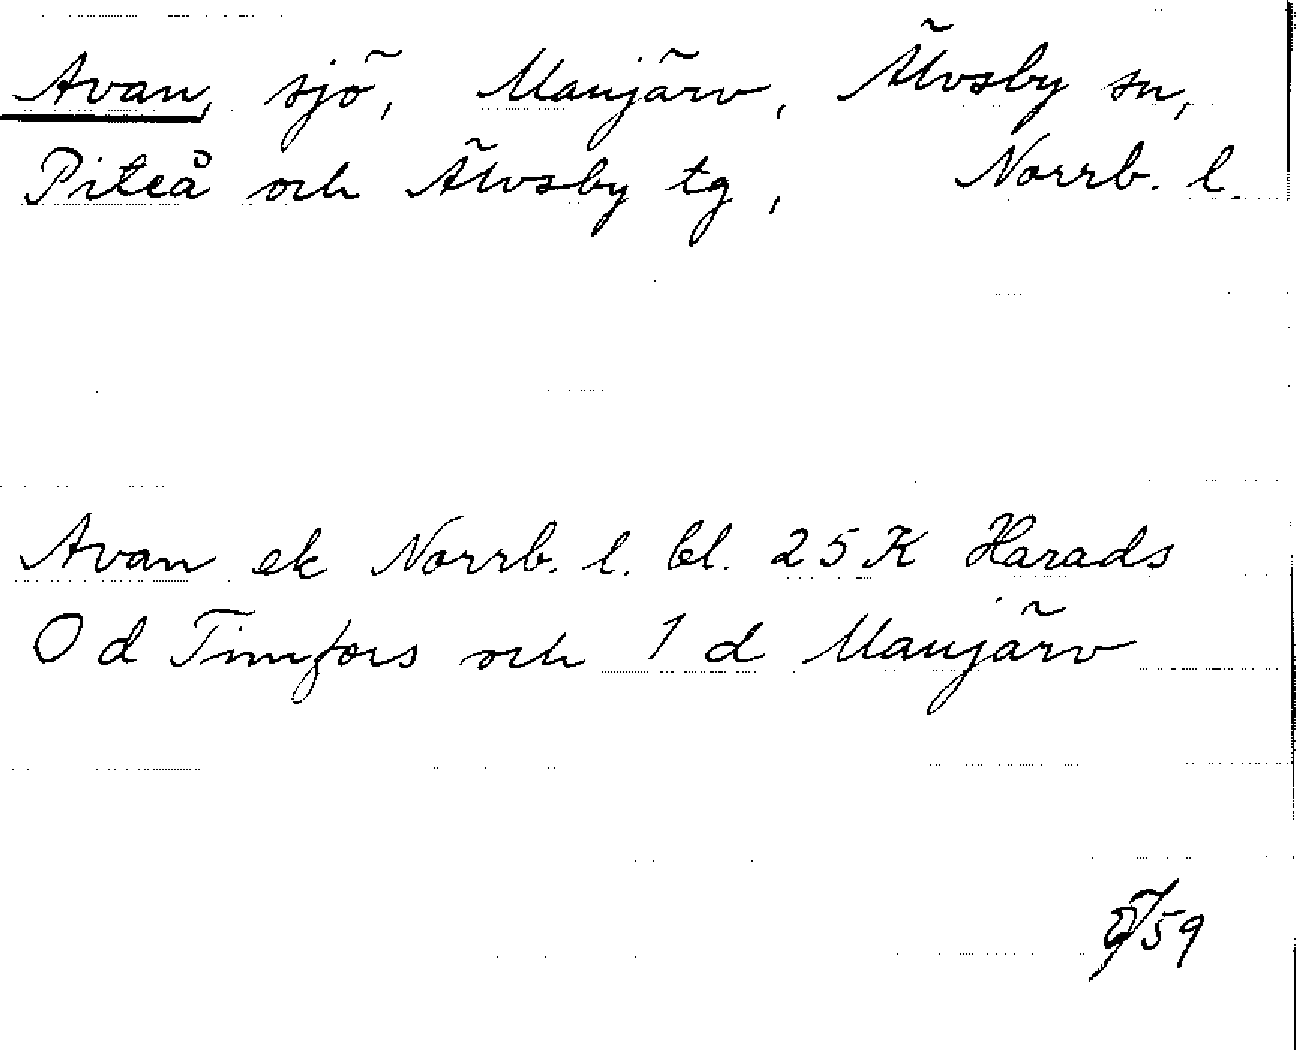 Avan, sjö, Manjärv, Älvsby sn,
Piteå och Älvsby tg, Norrb. l.
Avan ek Norrb. l. bl. 25 K Harads
0 d Timfors och 1 d Manjärv
/59